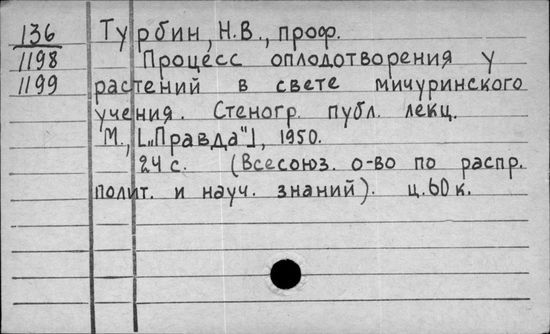 136 Турбин, Н.В., проф.
1198 Процесс оплодотворения у
1199 растений в свете мичуринского
учения. Стеногр. публ. лекц.
М., [„Правда"], 1950.
24 с. (Всесоюз. о-во по распр.
полит. и науч. знаний). ц. 60 к.